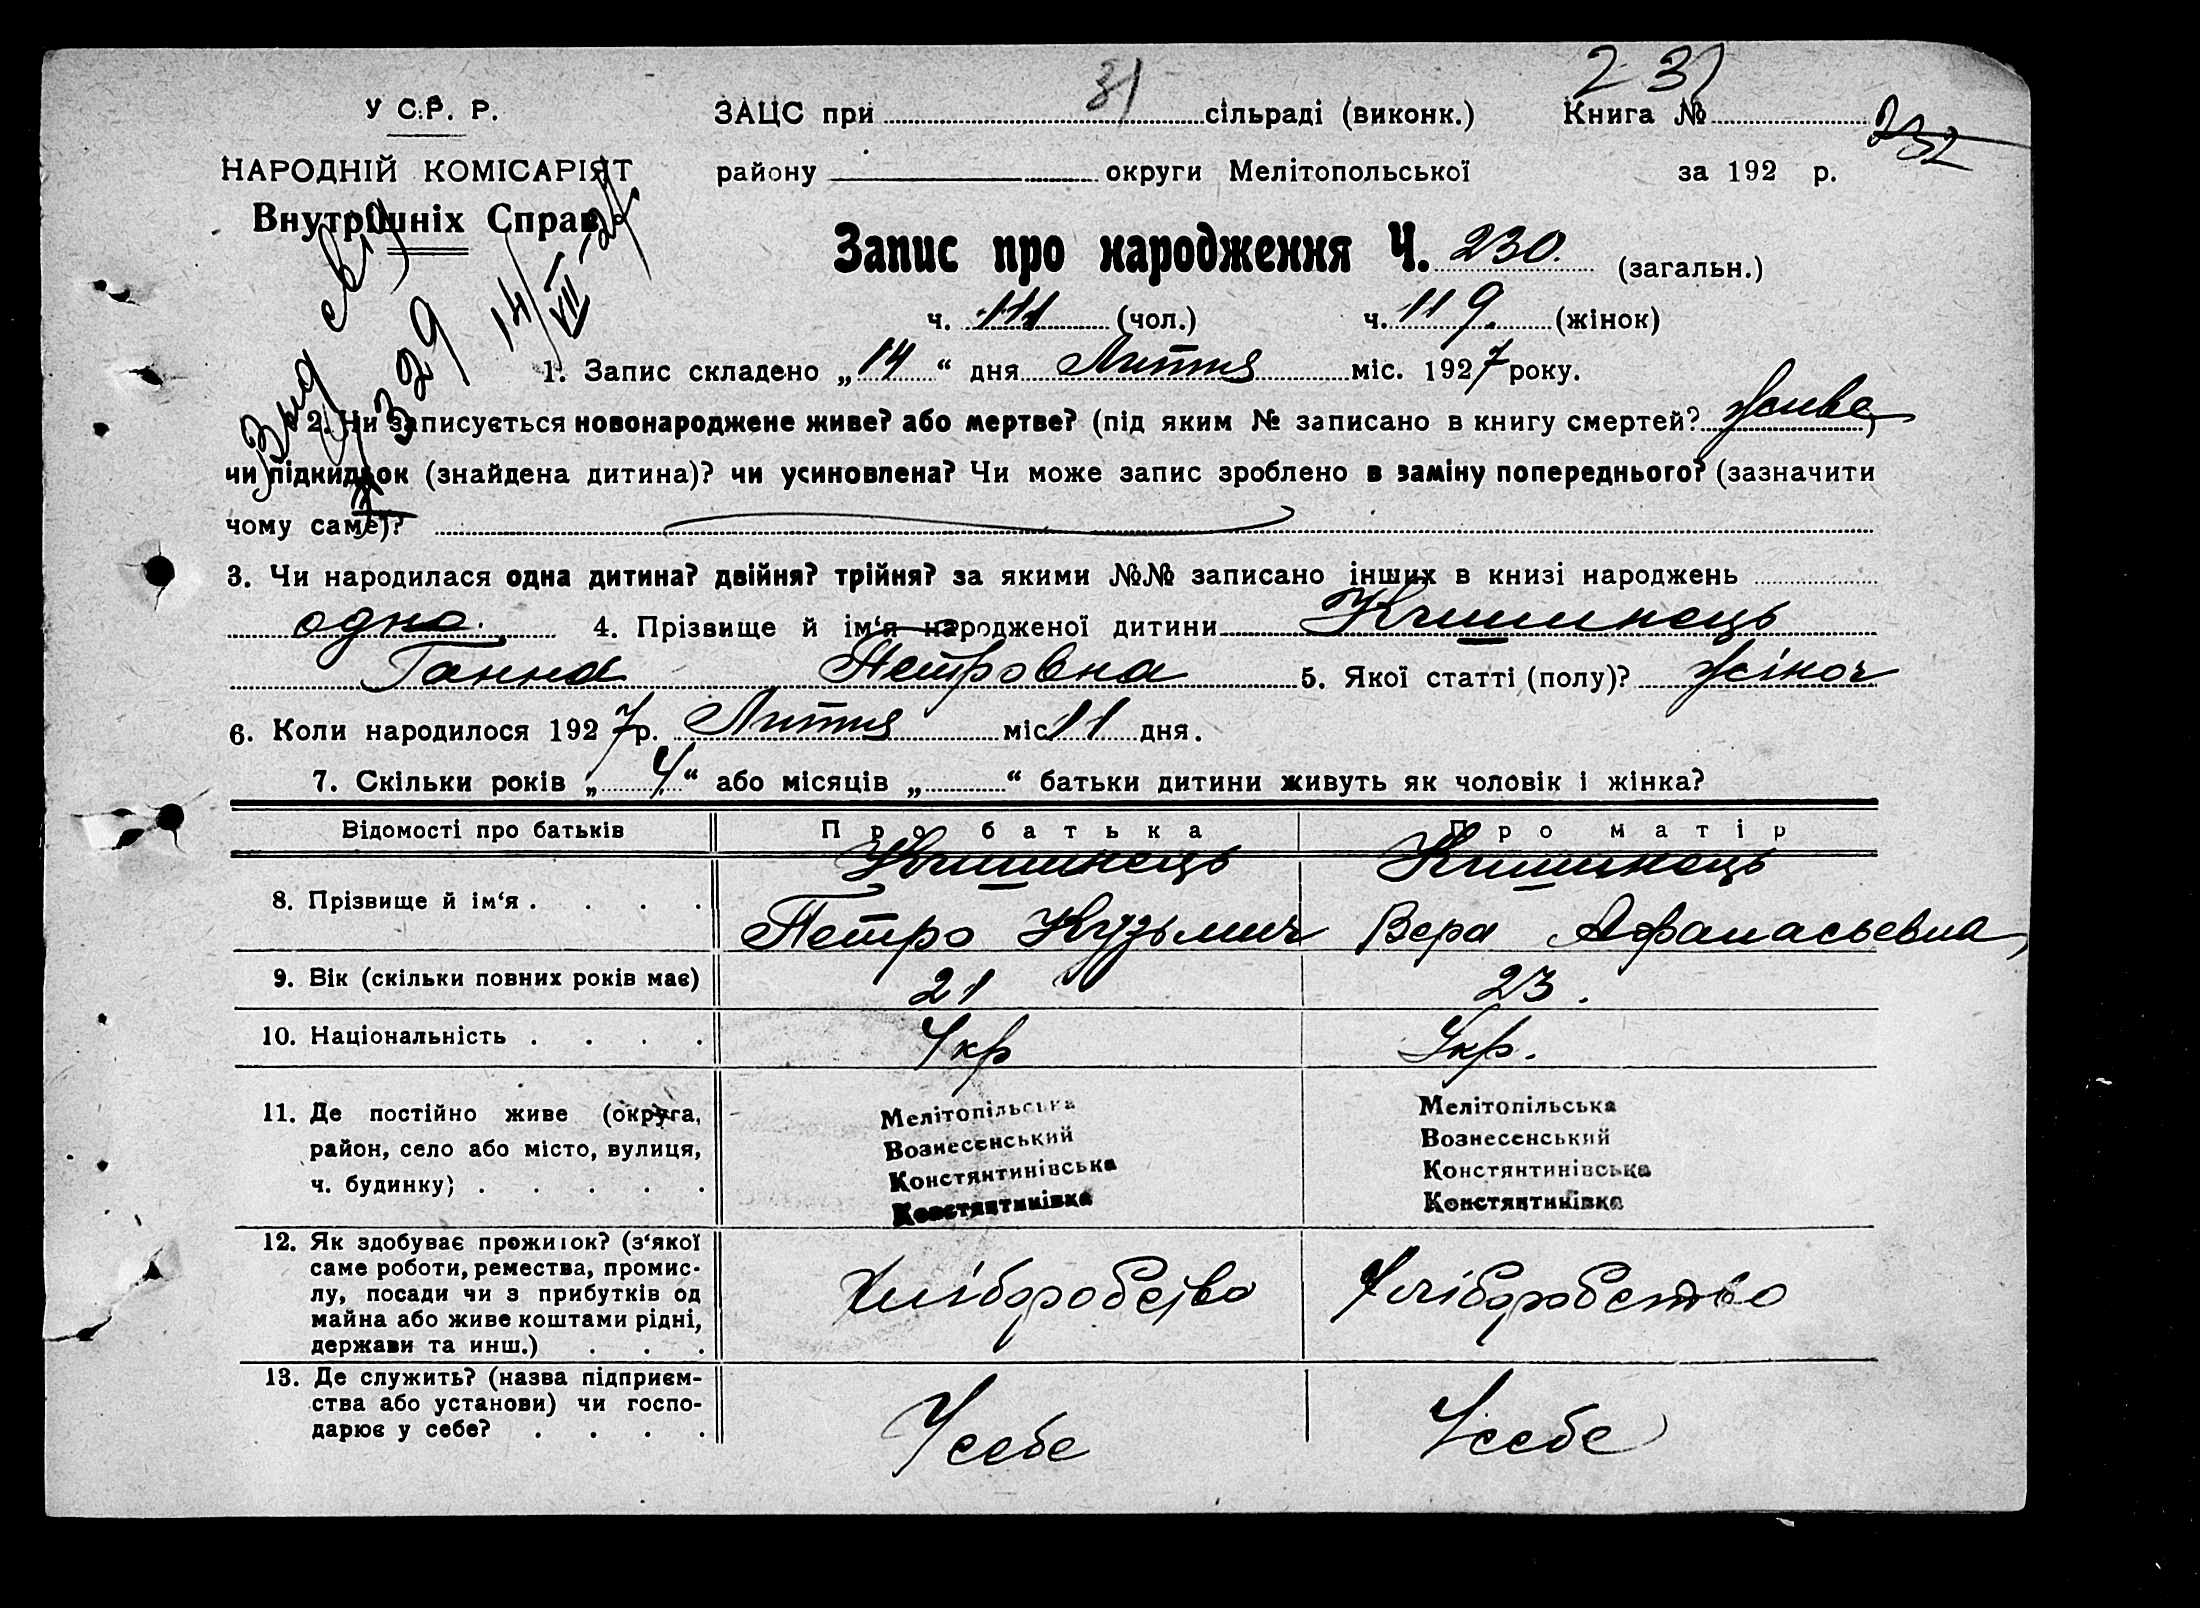 У С. Р. Р.
НАРОДНІЙ КОМІСАРІЯТ
Внутрішніх Справ
31
ЗАЦС при сільраді (виконк.)
231
Книга № 232
району округи Мелітопольської за 192 р.
Запис про народження Ч. 230. (загальн.)
ч. 111 (чол.) ч. 119. (жінок)
329 14/VII-27
1. Запис складено „14“ дня Липня міс. 1927 року.
2. Чи записується новонароджене живе? або мертве? (під яким № записано в книгу смертей? живе)
чи підкидьок (знайдена дитина)? чи усиновлена? Чи може запис зроблено в заміну попереднього? (зазначити
чому саме)?
3. Чи народилася одна дитина? двійня? трійня? за якими №№ записано інших в книзі народжень
одна. 4. Прізвище й ім‘я народженої дитини Кишинець
Ганна Петровна 5. Якої статті (полу)? жіноч
6. Коли народилося 1927 р. Липня міс 11 дня.
7. Скільки років „4“ або місяців „ “ батьки дитини живуть як чоловік і жінка?
Відомості про батьків Про батька Про матір
8. Прізвище й ім‘я . . . . Кишинець Петро Кузьмич Кишинець Вера Афанасьевна
9. Вік (скільки повних років має) 21 23.
10. Національність . . . . Укр Укр.
11. Де постійно живе (округа,
район, село або місто, вулиця,
ч. будинку) . . . . .
Мелітопільська
Вознесенський
Констянтинівська
Констянтинівка
Мелітопільська
Вознесенський
Констянтинівська
Констянтинівка
12. Як здобуває прожиток? (з‘якої
саме роботи, ремества, промис-
лу, посади чи з прибутків од
майна або живе коштами рідні,
держави та инш.) . . .
Хліборобство Хліборобство
13. Де служить? (назва підприєм-
ства або установи) чи госпо-
дарює у себе? . . . .
У себе У себе